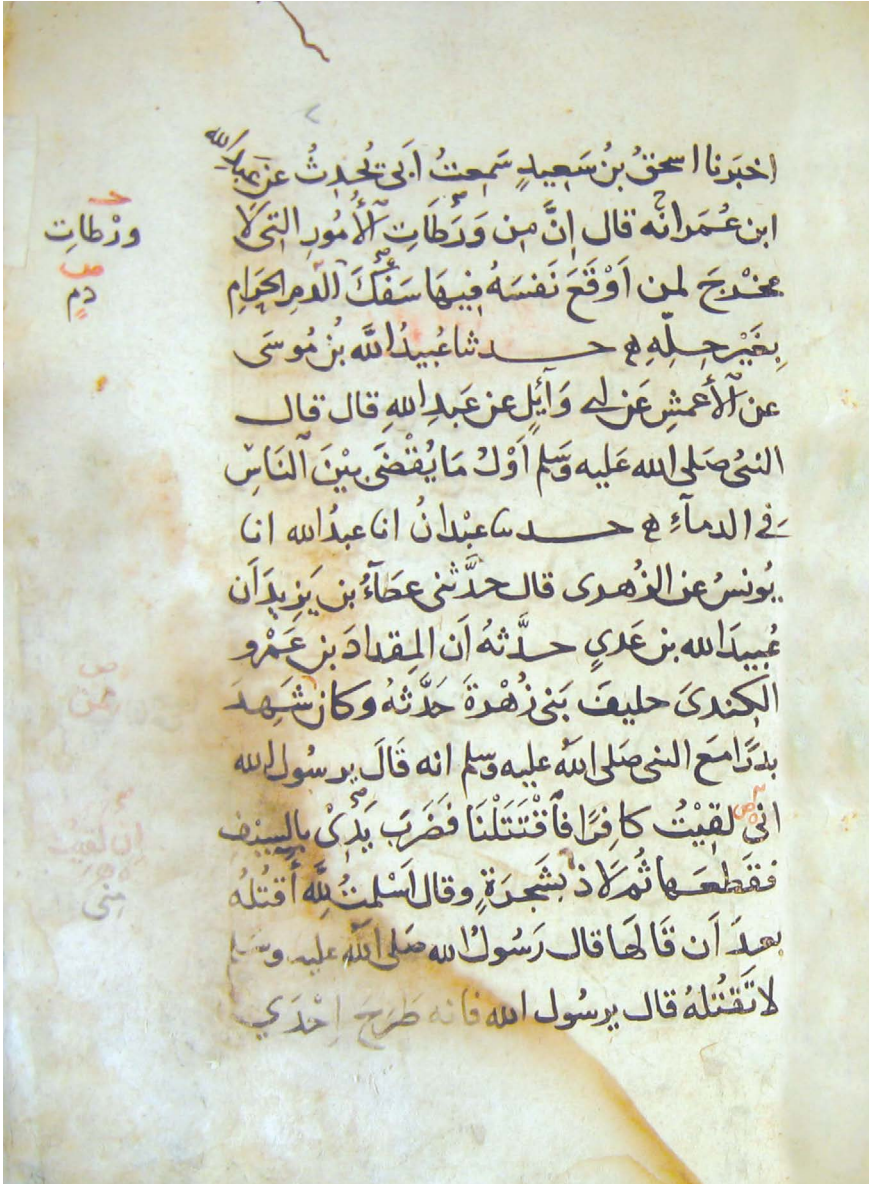 اخبَرنا اسحقُ بنُ سَعِيدٍ سَمِعتُ ابَى يُحدِثُ عَن عَبدِ الله
ابن عُمَرَ انَّه قال اِنَّ مِن وَرَطَاتِ الأُمُورِ التى لَا
مخْرجَ لمن اَوْقَعَ نَفسَهُ فِيهَا سَفْكَ الدمِ الحَرامِ
بِغَيْرِ حِلِّهِ ه حدثنا عُبيدُ اللَّه بنُ مُوسَى
عن الأعمشِ عَن ابى وَآئِلٍ عن عَبدِ اللهِ قال قال
النبىُّ صَلى الله عَليه وَسَلم اَوَّلُ مَا يُقْضَى بَيْنَ النَاسِ
فى الدمآءِ ه حدثنا عبْدانُ انا عبدُ الله انا
يُونسُ عن الزُهرى قال حدَّثنى عطَآءُ بن يَزِيدَ اَن
عُبيدَ الله بن عَدىٍ حدَّثهُ اَن المِقدادَ بن عَمْرو
الكِندىَ حليفَ بَنى زُهْرةَ حَدَّثهُ وكان شَهِدَ
بدرًا مَعَ النبى صَلى اللهُ عليه وسَلم انه قَالَ يرسُول الله
انى لَقِيْتُ كافِرًا فاقْتَتَلْنَا فَضَرَبَ يَدِىْ بالسيْفِ
فقَطعَها ثُم لَاذَ بشَجرَةٍ وقال اَسْلمتُ لِلَّهِ أَقتُلهُ
بعدَ اَن قَالهَا قال رَسُولُ الله صَلى الله عليه وسَلم
لا تَقتُلهُ قال يرسُول الله فانه طَرَحَ اِحْدَي
ورْطاتِ
ص
دمٍ
ص
اِن لقيتُ
منى